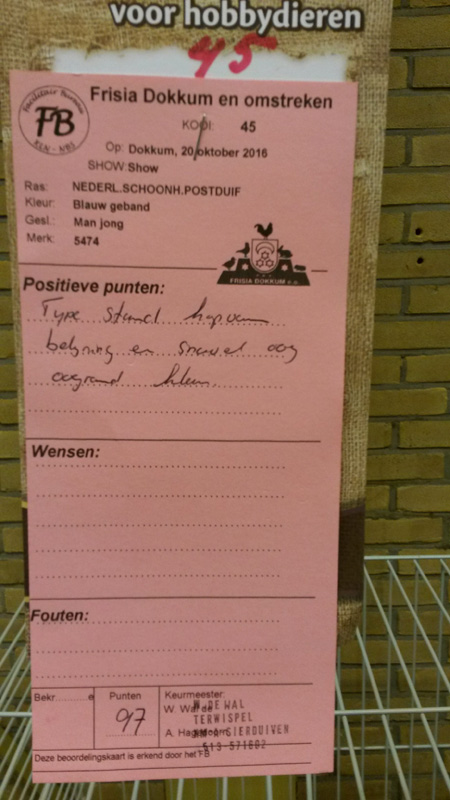 voor hobbydieren
45
Frisia Dokkum en omstreken
Facilitair Bureau
FB
KLN - NBS
KOOI: 45
Op: Dokkum, 20 oktober 2016
SHOW: Show
Ras: NEDERL.SCHOONH.POSTDUIF
Kleur: Blauw geband
Gesl.: Man jong
Merk: 5474
FRISIA DOKKUM e.o.
Positieve punten:
Type Stand kopvorm
belijning en snavel oog
oogrand kleur
Wensen:
Fouten:
Bekr. e
Punten
97
Keurmeester:
W. Wal de
W DE WAL
TERWISPEL
A.
SIERDUIVEN
513-571602
Deze beoordelingskaart is erkend door het FB